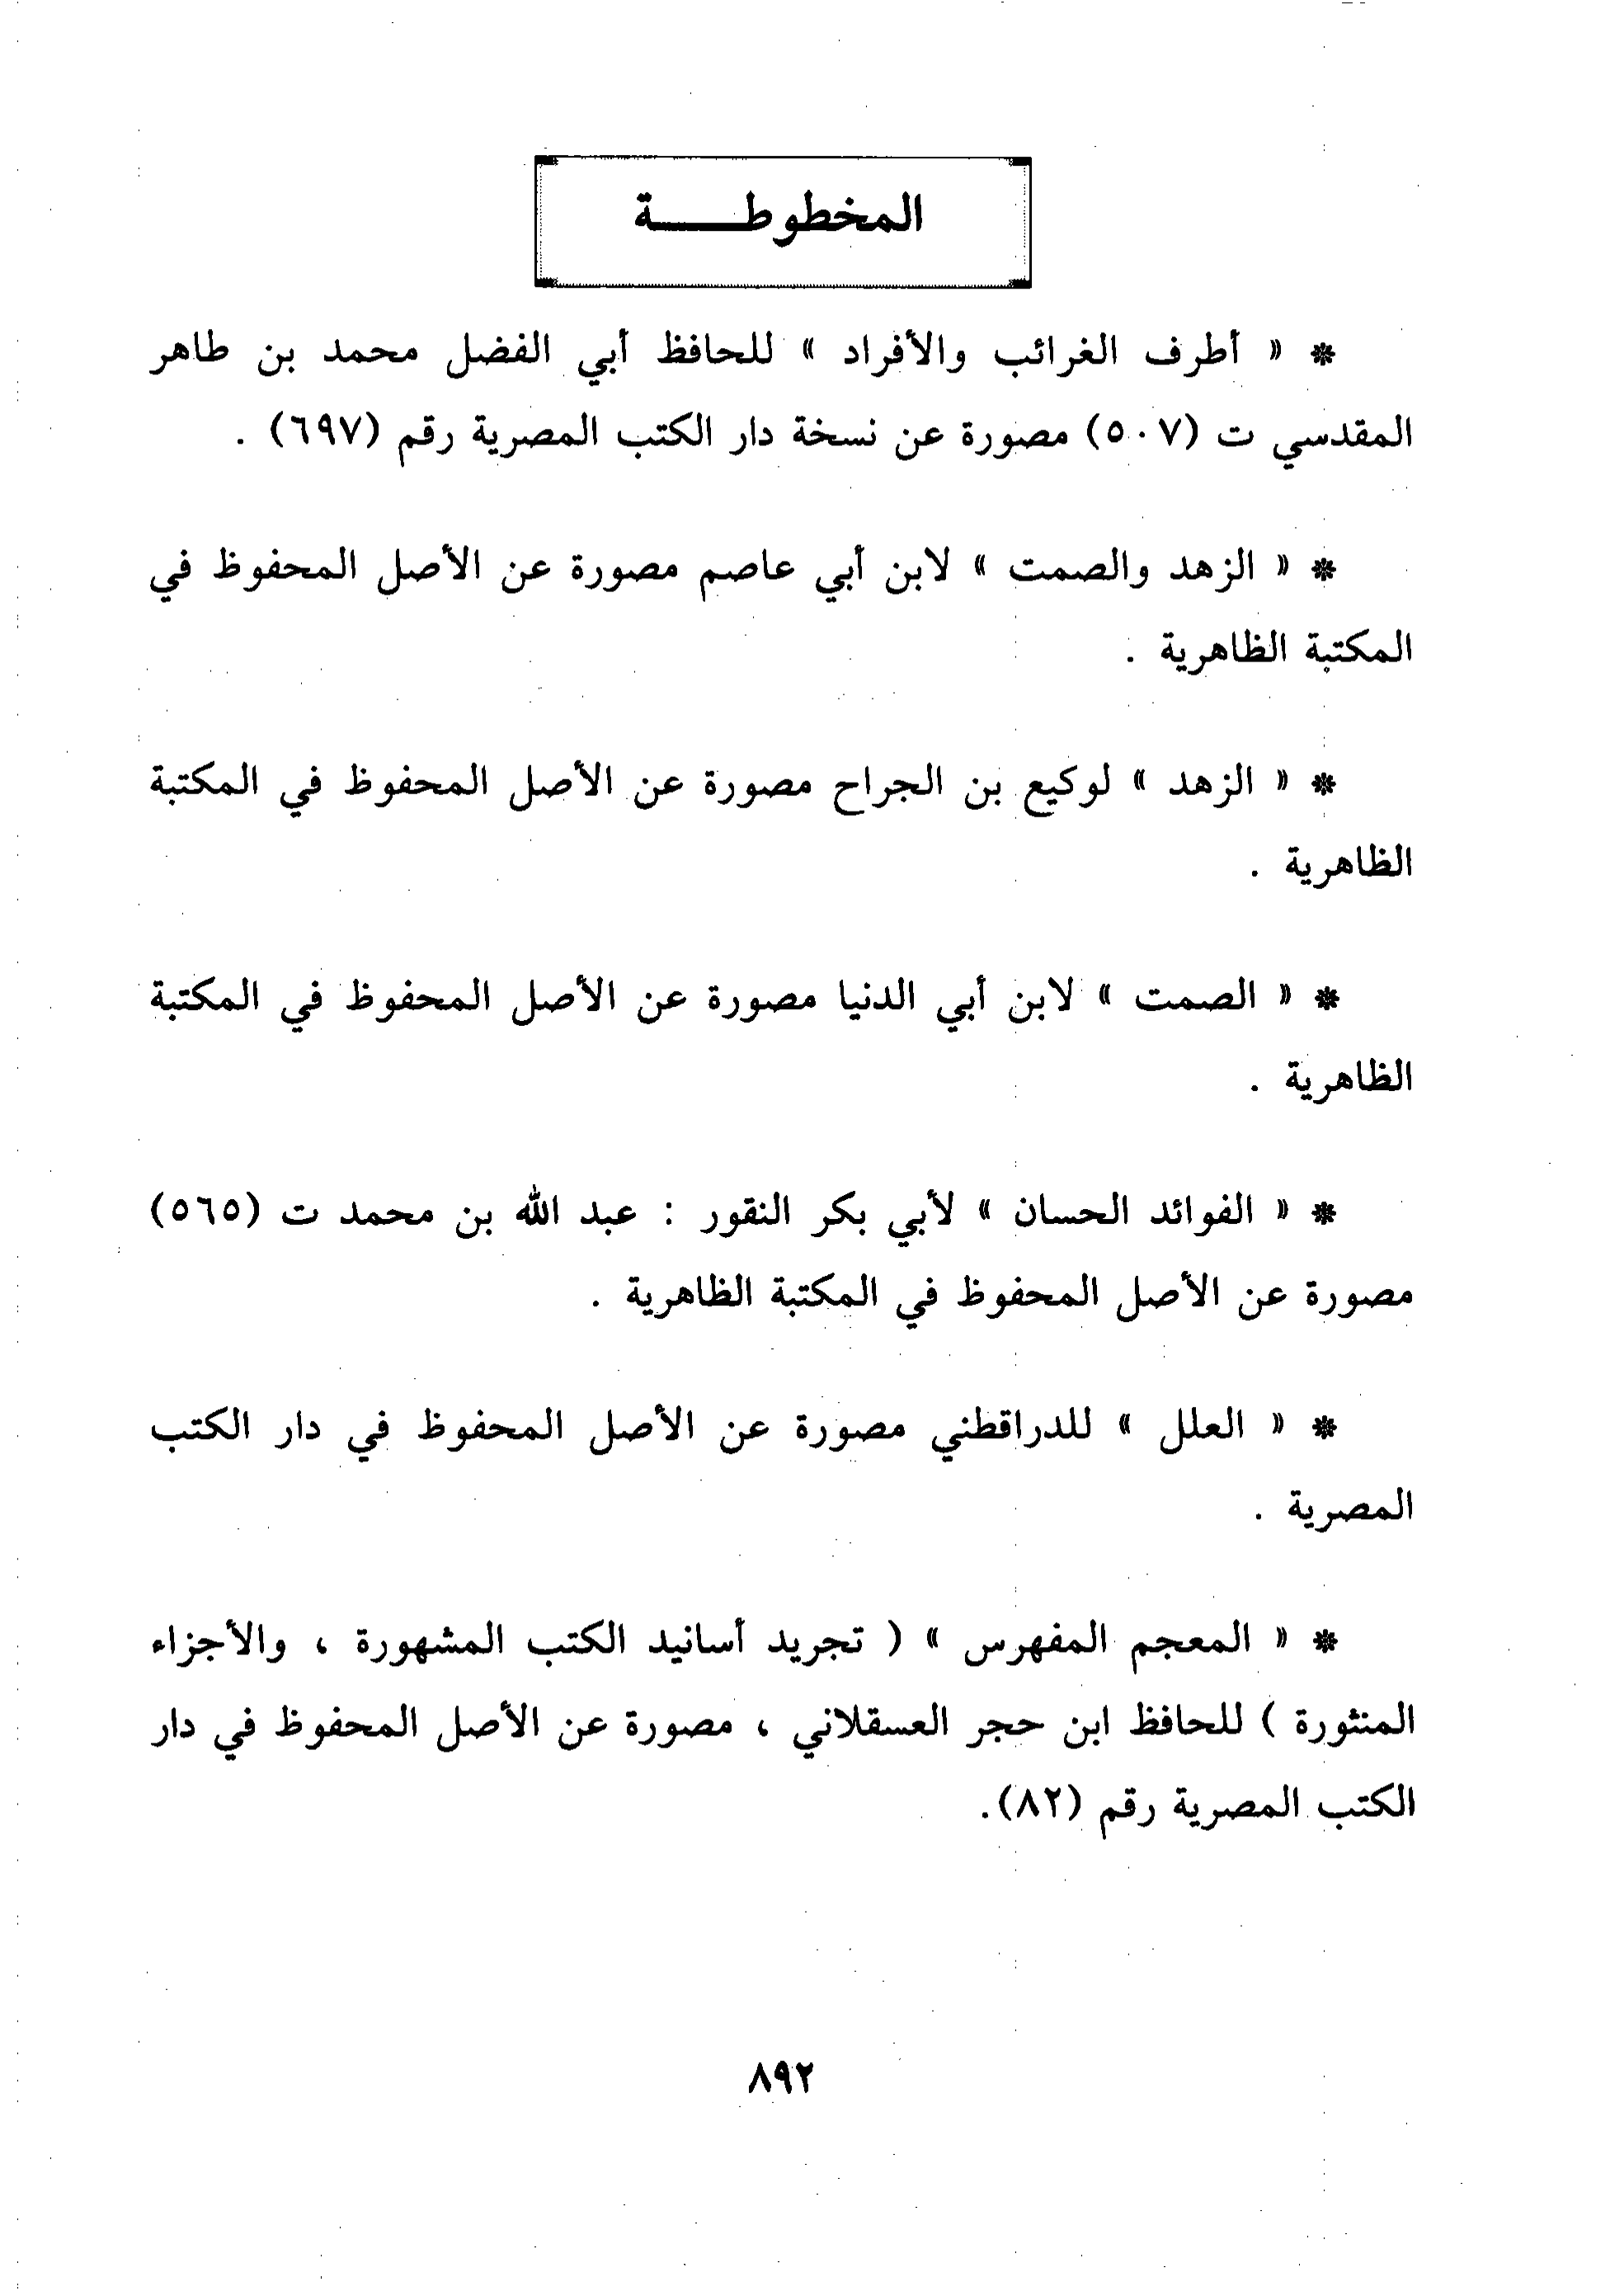 المخطوطـــــة
* « أطرف الغرائب والأفراد » للحافظ أبي الفضل محمد بن طاهر
المقدسي ت (٥٠٧) مصورة عن نسخة دار الكتب المصرية رقم (٦٩٧) .
* « الزهد والصمت » لابن أبي عاصم مصورة عن الأصل المحفوظ في
المكتبة الظاهرية .
* « الزهد » لوكيع بن الجراح مصورة عن الأصل المحفوظ في المكتبة
الظاهرية .
* « الصمت » لابن أبي الدنيا مصورة عن الأصل المحفوظ في المكتبة
الظاهرية .
* « الفوائد الحسان » لأبي بكر النقور : عبد الله بن محمد ت (٥٦٥)
مصورة عن الأصل المحفوظ في المكتبة الظاهرية .
* « العلل » للدراقطني مصورة عن الأصل المحفوظ في دار الكتب
المصرية .
* « المعجم المفهرس » ( تجريد أسانيد الكتب المشهورة ، والأجزاء
المنثورة ) للحافظ ابن حجر العسقلاني ، مصورة عن الأصل المحفوظ في دار
الكتب المصرية رقم (٨٢).
٨٩٢